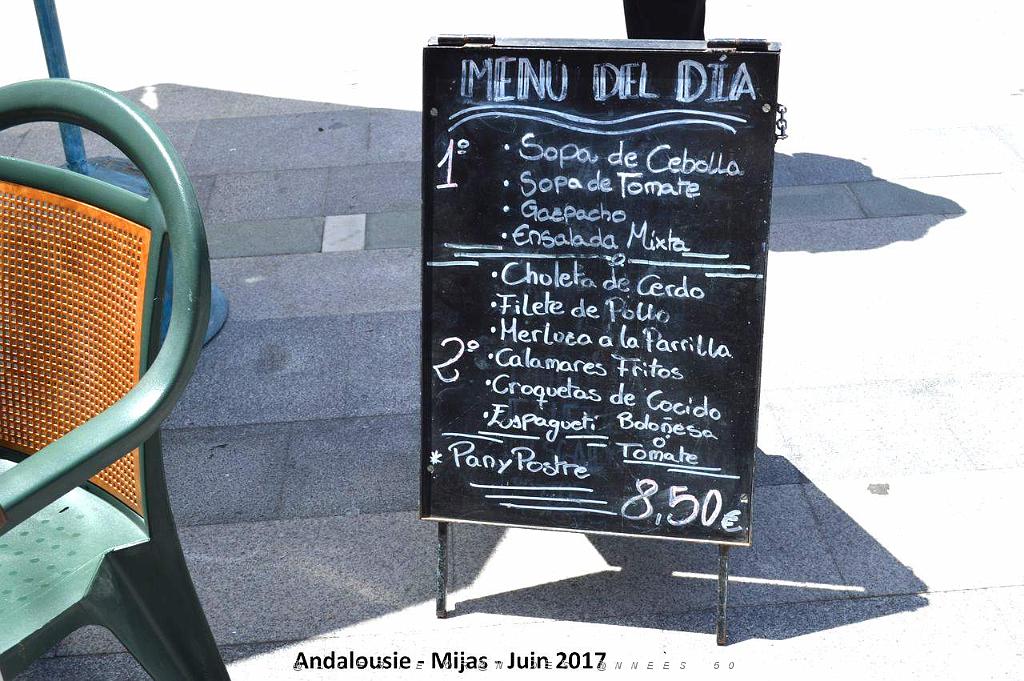 MENU DEL DÍA
1º
· Sopa de Cebolla
· Sopa de Tomate
· Gazpacho
· Ensalada Mixta
2º
· Chuleta de Cerdo
· Filete de Pollo
· Merluza a la Parrilla
· Calamares Fritos
· Croquetas de Cocido
· Espagueti Boloñesa
o
Tomate
* Pan y Postre
8,50€
Andalousie - Mijas - Juin 2017